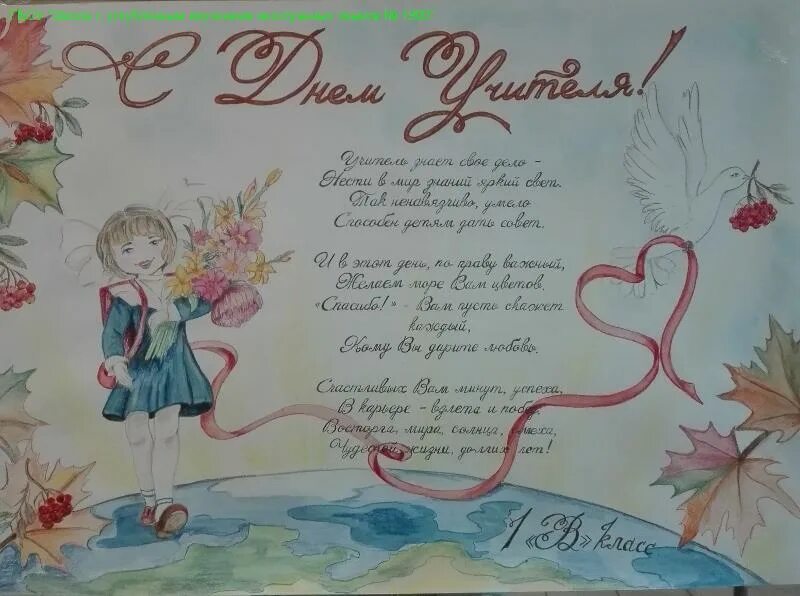 ГБОУ Школа с углубленным изучением иностранных языков №
С Днем Учителя!
Учитель знает свое дело -
Нести в мир знаний яркий свет.
Так ненавязчиво, умело
Способен детям дать совет.
И в этот день, по праву важный,
Желаем море Вам цветов.
«Спасибо!» - Вам пусть скажет
каждый,
Кому Вы дарите любовь.
Счастливых Вам минут, успеха,
В карьере - взлета и побед,
Восторга, мира, солнца, смеха,
Чудесной жизни, долгих лет!
1 «В» класс